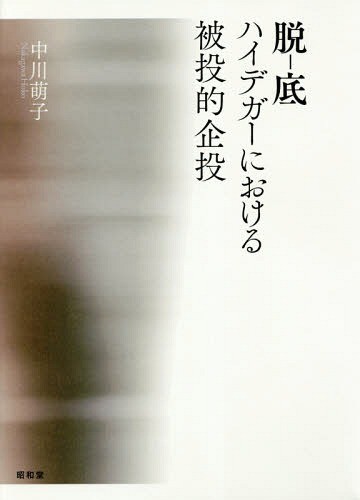 脱−底
ハイデガーにおける
被投的企投
中川萌子
Nakagawa Hoko
昭和堂